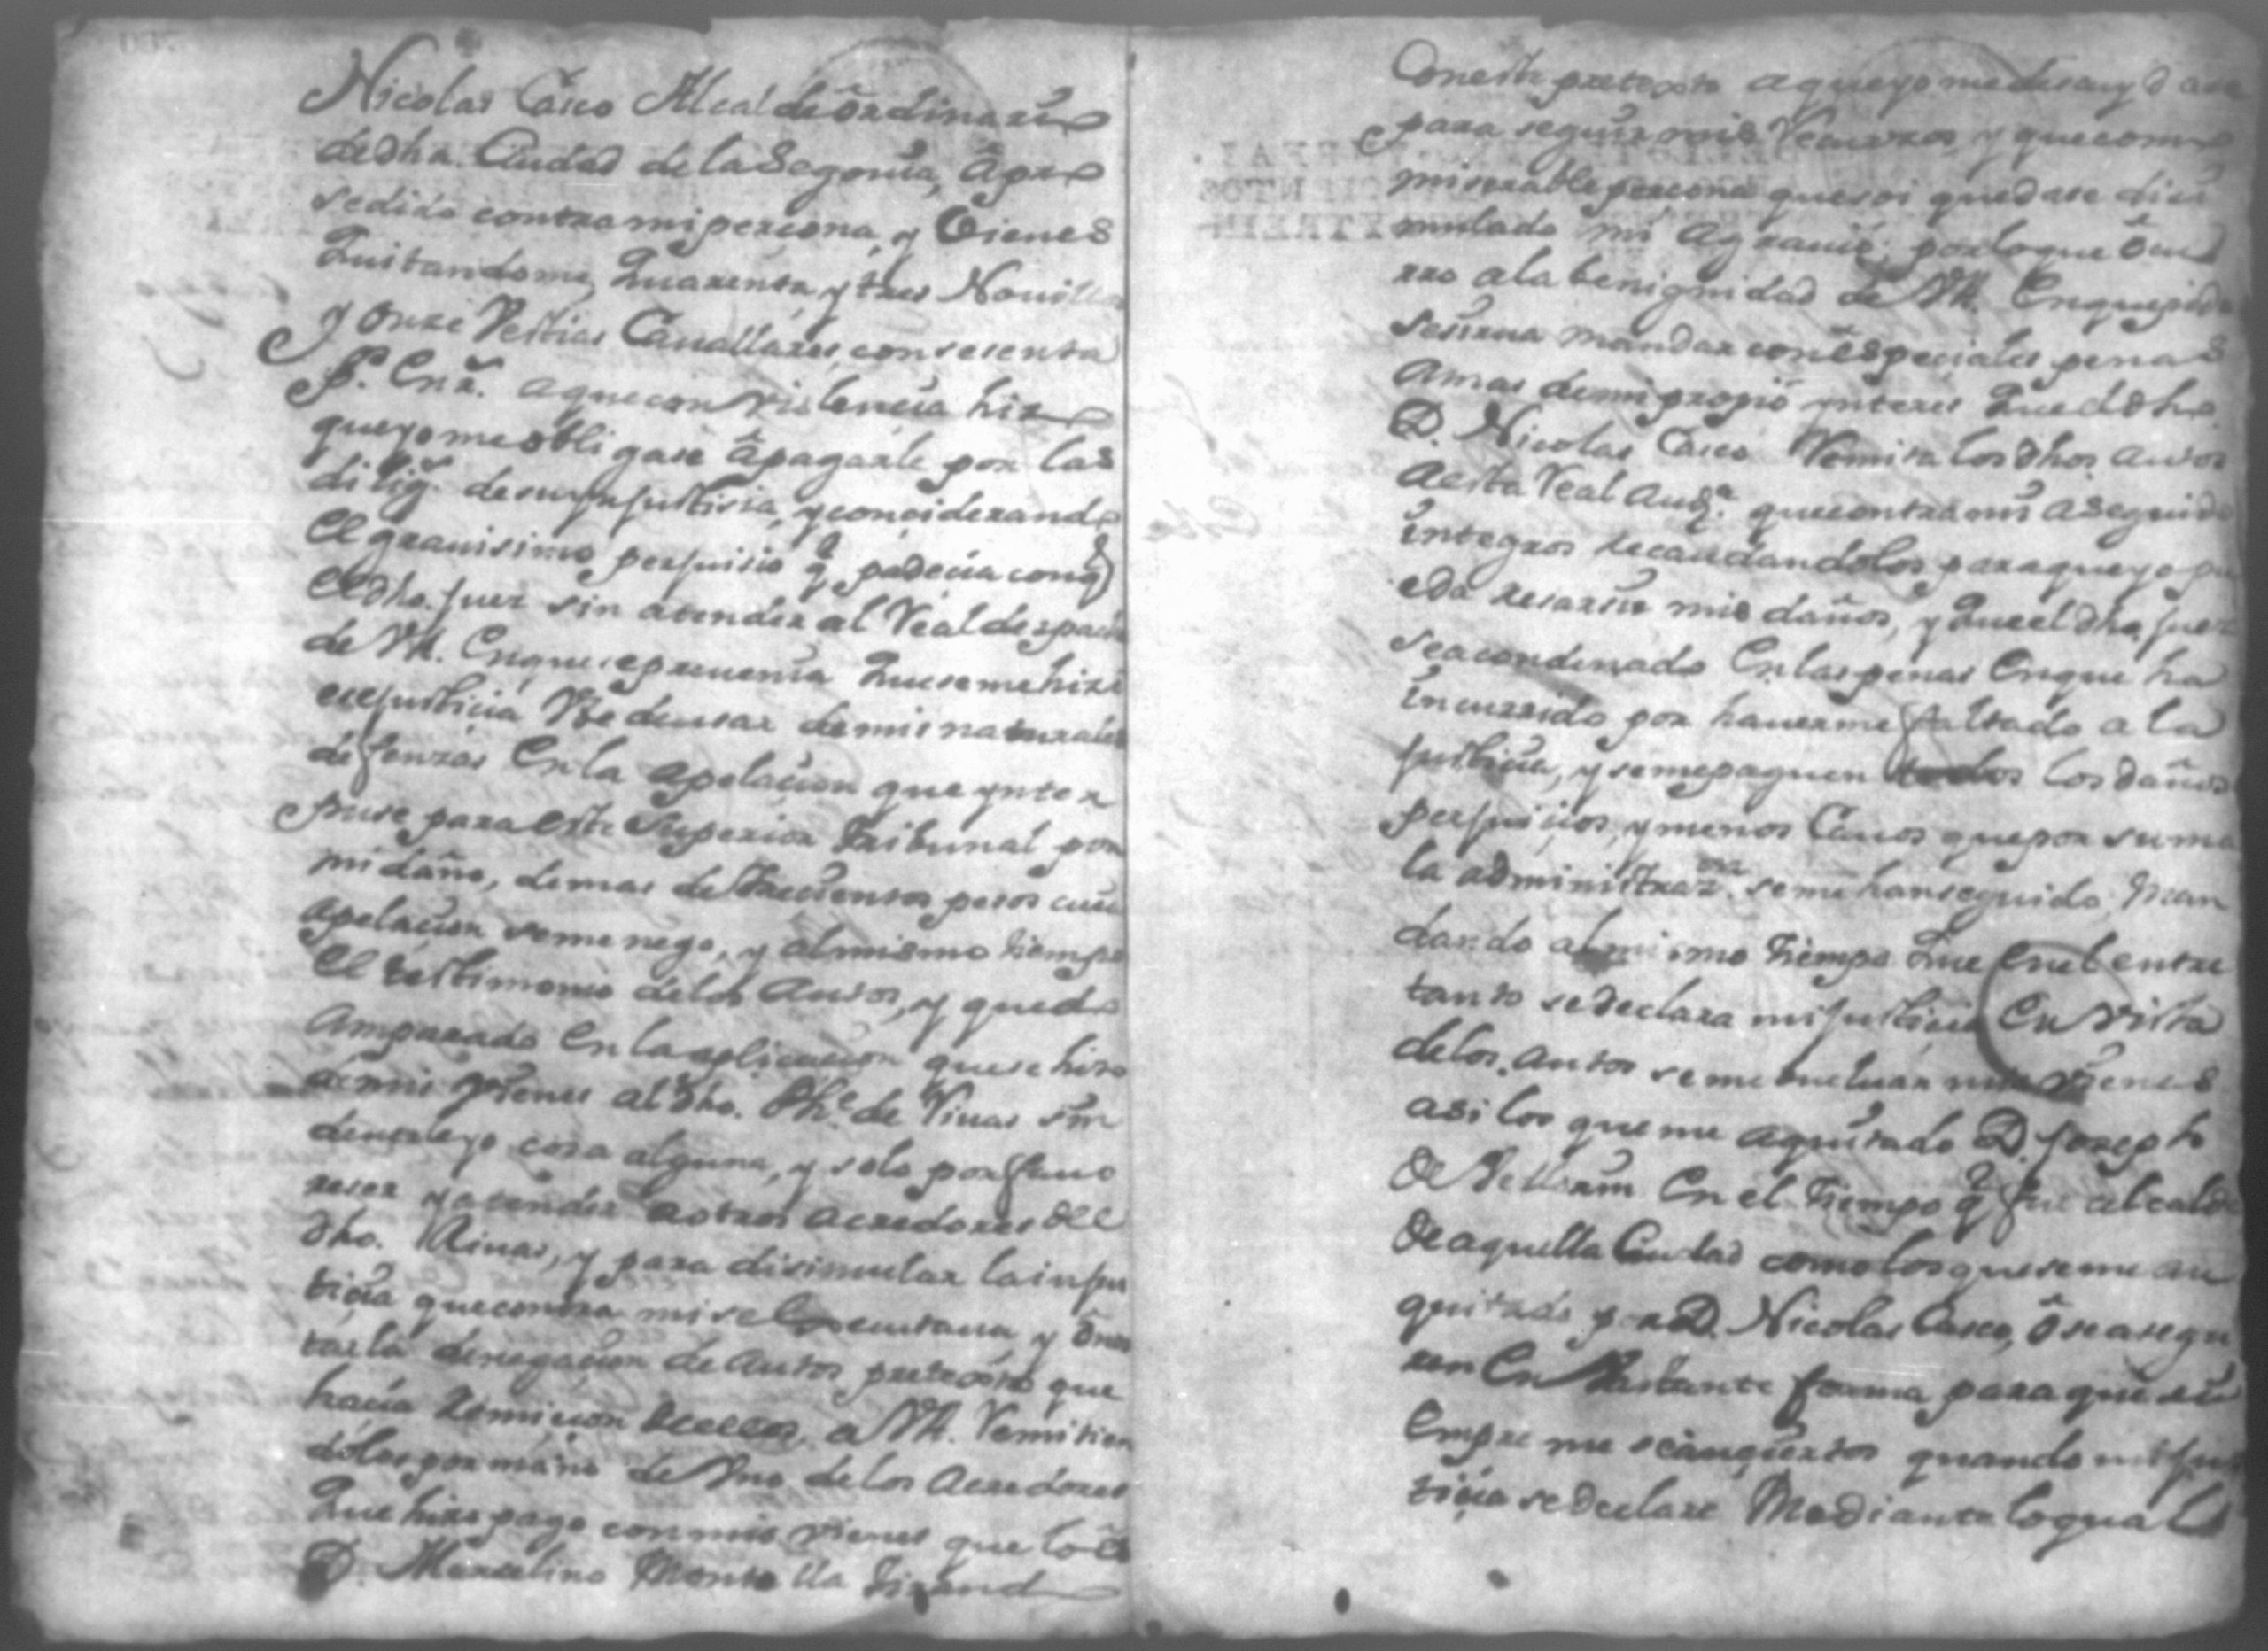 Nicolas Casco Alcalde ôrdinario
de dha. Ciudad de la Segovia, â pro
sedido contra mi persona, y Vienes
Quitandome, Quarenta, y tres Novillos
y onze Vestias Cavallares, con sesenta
p.
a que con violencia hizo
que yo me obligase â pagarle por las
dilig.s de su injustisia, y conciderando
el gravisimo perjuisio q̂ padecia con q̂
el dho. Juez sin atender al Real despacho
de VA. en que se prevenia que se me hizi
ese justicia
de mis naturales
defenzas En la apelacion que ynter
puse para este Superior Tribunal por
mi daño, de mas de Trecientos pesos cuia
apelacion se me nego, y al mismo tiempo
el testimonio de los Autos, y quedo
Amparado En la aplicacion que se hizo
de mis vienes al dho. Ph.e de Vivas sin
dentrego cosa alguna, y solo por favo
reser y atender a otros acredores del
dho. Rivas, y para disimular la injus
ticia que contra mi se
y
tar la denegacion de Autos pretextó que
hacia Remicion de ellos, a VA. Remitien
dolos por mano de Vno de los Acredores
Que hizo pago con mis vienes que lo es
D. Marcelino Montilla Tirando
Con este pretexto a que yo me descuydase
para seguir mis Recursos, y que como
miserable persona que soi quedase disi
mulado mi Agravio; por lo que ôcu
rro a la benignidad de VA. En que pido
se sirva mandar con êspeciales penas
a mas de mi propio ynteres Que el dho
D. Nicolas Casco Remita los dhos. autos
a esta Real Aud.a que contra mi a seguido
integros recaudandolos para que yo pu
eda resarsir mis daños, y Que el dho Juez
sea condenado En las penas En que ha
incurrido por haverme faltado a la
Justicia, y se me paguen los daños
perjuicios, y menos Cavos que por su ma
la administraz.on se me han seguido, Man
dando al mismo tiempo Que En el entre
tanto se declara mi justicia En vista
de los autos se me buelvan mis vienes
asi los que me a quitado D. Joseph
de En el tiempo q̂ fue alcalde
de aquella Ciudad como los que se me an
quitado por D. Nicolas Casco, ô se asegu
ren En Bastante forma para que si
empre me quando mi jus
ticia se declare Mediante lo qual